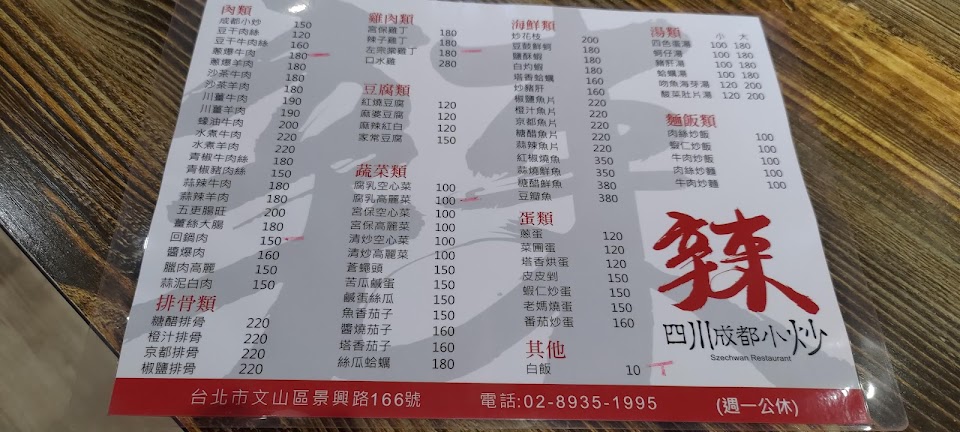 肉類
成都小炒 150
豆干肉絲 120
豆干牛肉絲 160
蔥爆牛肉 180
蔥爆羊肉 180
沙茶牛肉 180
沙茶羊肉 180
川薑牛肉 190
川薑羊肉 190
蠔油牛肉 200
水煮牛肉 220
水煮羊肉 220
青椒牛肉絲 180
青椒豬肉絲 150
蒜辣牛肉 180
蒜辣羊肉 180
五更腸旺 200
薑絲大腸 180
回鍋肉 150
醬爆肉 160
臘肉高麗 150
蒜泥白肉 150
排骨類
糖醋排骨 220
橙汁排骨 220
京都排骨 220
椒鹽排骨 220
雞肉類
宮保雞丁 180
辣子雞丁 180
左宗棠雞丁 180
口水雞 280
豆腐類
紅燒豆腐 120
麻婆豆腐 120
麻辣紅白 120
家常豆腐 150
蔬菜類
腐乳空心菜 100
腐乳高麗菜 100
宮保空心菜 100
宮保高麗菜 100
清炒空心菜 100
清炒高麗菜 100
蒼蠅頭 150
苦瓜鹹蛋 150
鹹蛋絲瓜 150
魚香茄子 150
醬燒茄子 160
塔香茄子 160
絲瓜蛤蠣 180
海鮮類
炒花枝 200
豆鼓鮮蚵 180
鹽酥蝦 180
白灼蝦 180
塔香蛤蠣 180
炒豬肝 180
椒鹽魚片 220
橙汁魚片 220
京都魚片 220
糖醋魚片 220
蒜辣魚片 220
紅椒燒魚 350
蒜燒鮮魚 350
糖醋鮮魚 380
豆瓣魚 380
蛋類
蔥蛋 120
菜圃蛋 120
塔香烘蛋 120
皮皮剉 150
蝦仁炒蛋 150
老媽燒蛋 150
番茄炒蛋 160
其他
白飯 10
湯類 小 大
四色蛋湯 100 180
蚵仔湯 100 180
豬肝湯 100 180
蛤蠣湯 100 180
吻魚海芽湯 120 200
酸菜肚片湯 120 200
麵飯類
肉絲炒飯 100
蝦仁炒飯 100
牛肉炒飯 100
肉絲炒麵 100
牛肉炒麵 100
辣
四川成都小炒
Szechwan Restaurant
台北市文山區景興路166號 電話:02-8935-1995 (週一公休)